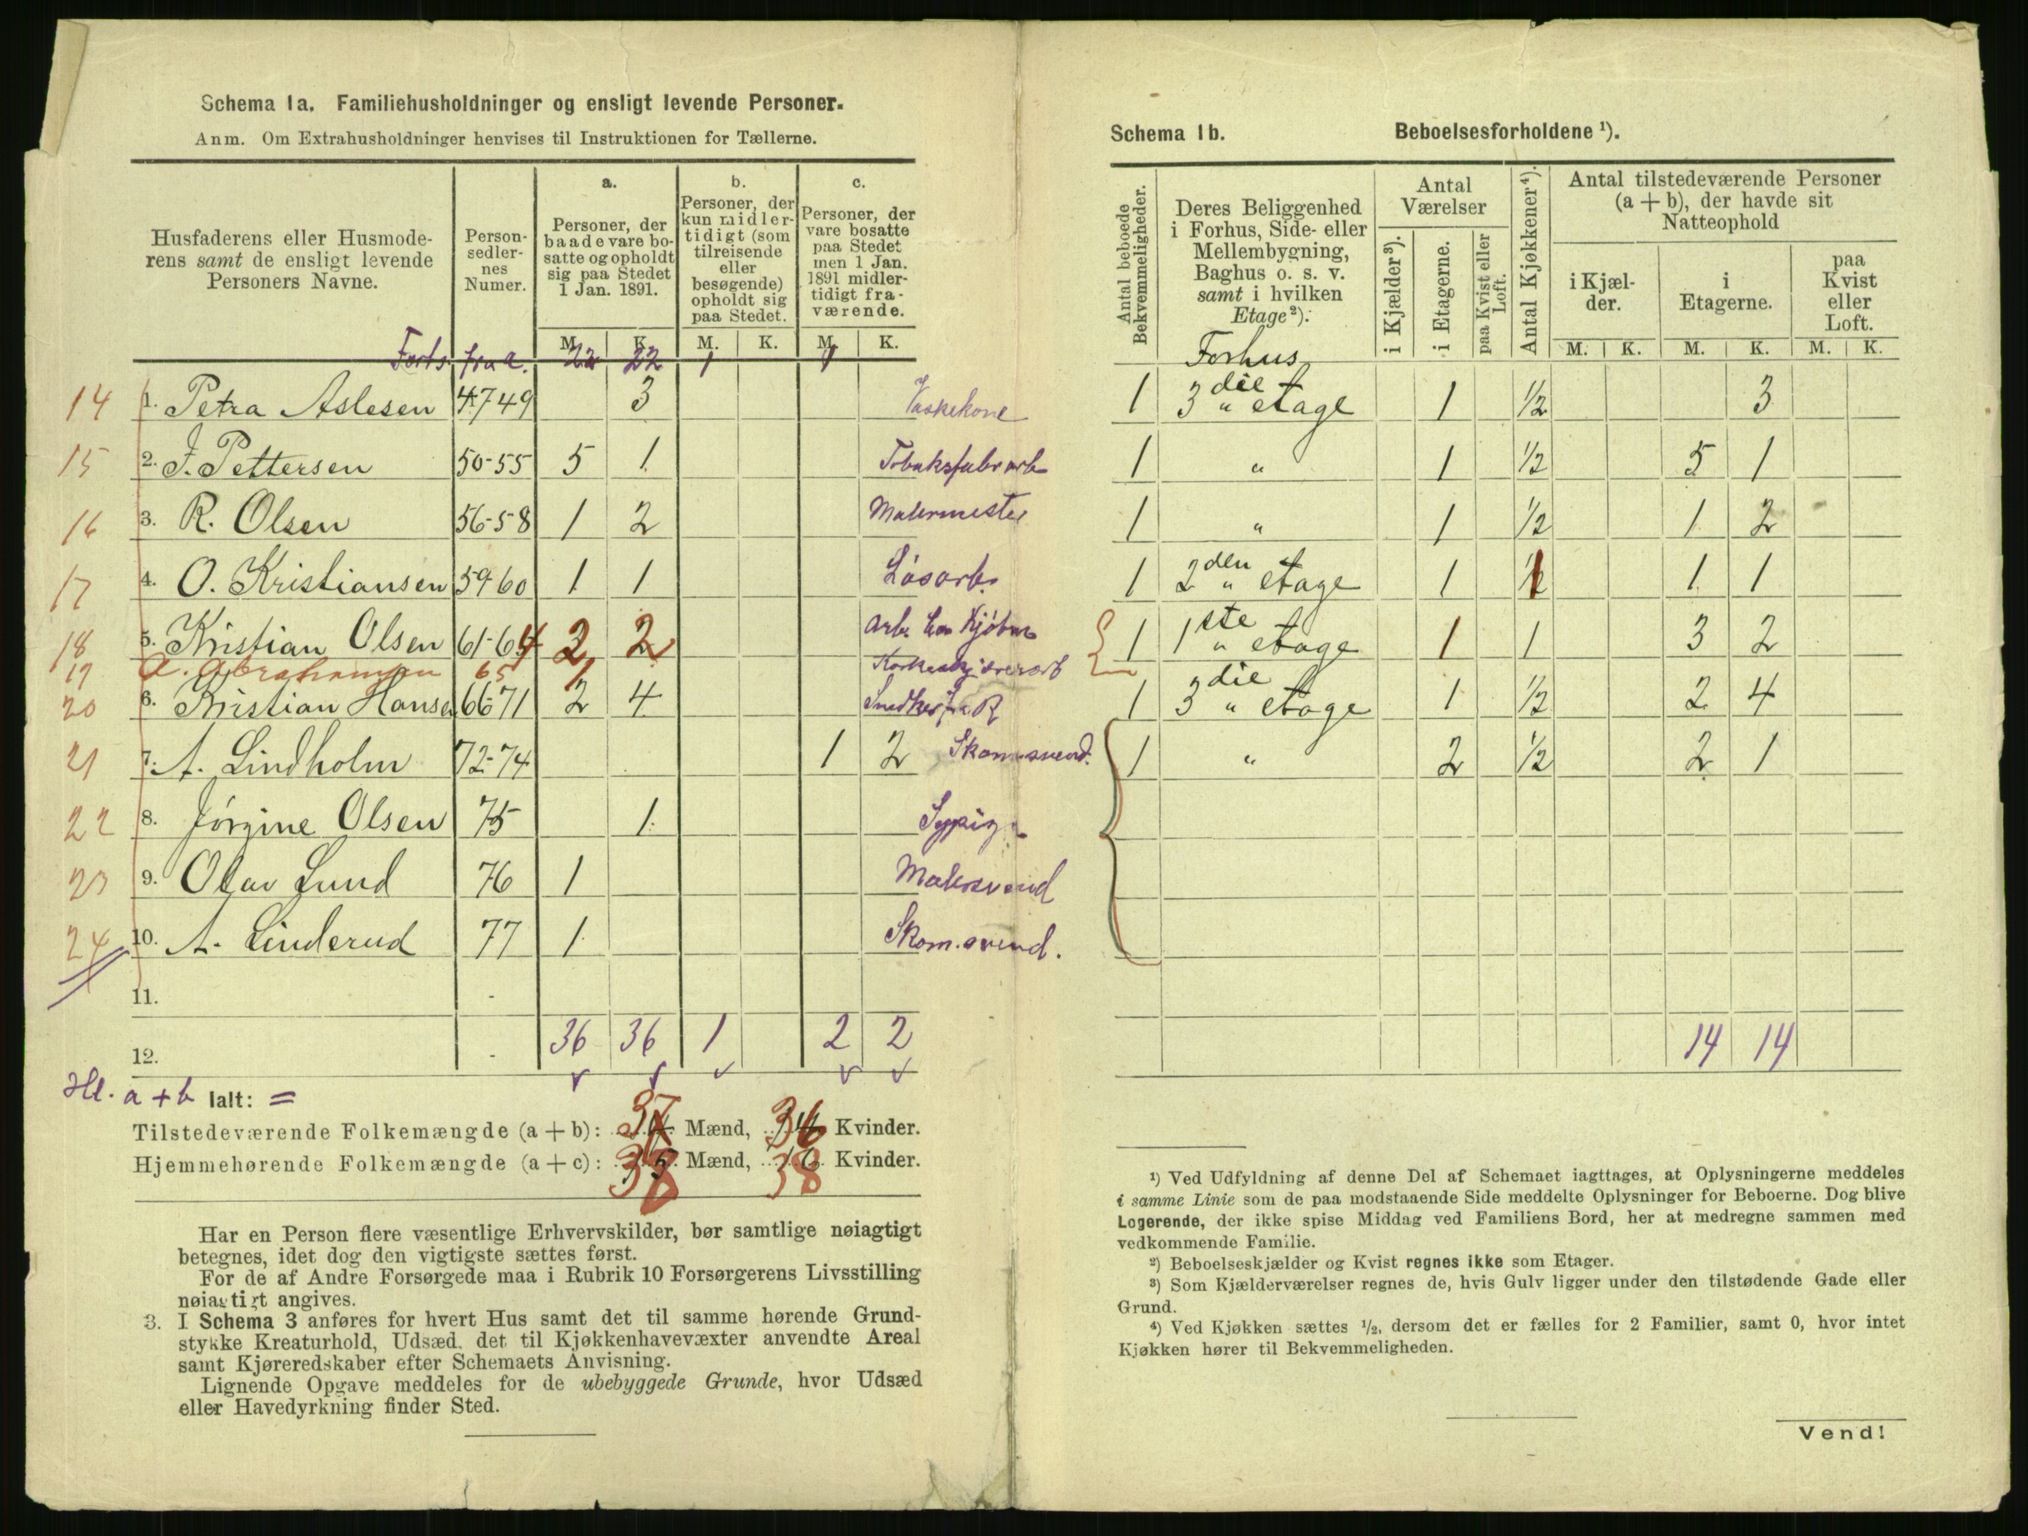 Schema 1a. Familiehusholdninger og ensligt levende Personer.
Anm. Om Extrahusholdninger henvises til Instruktionen for Tællerne.
Husfaderens eller Husmode-
rens samt de ensligt levende
Personers Navne.
Person-
sedler-
nes
Numer.
a.
Personer, der
baade vare bo-
satte og opholdt
sig paa Stedet
1 Jan. 1891.
b.
Personer, der
kun midler-
tidigt (som
tilreisende
eller
besøgende)
opholdt sig
paa Stedet.
c.
Personer, der
vare bosatte
paa Stedet
men 1 Jan.
1891 midler-
tidigt fra-
værende.
M. K. M. K. M. K.
Forts. fra a. 22 22 1 1
14 1. Petra Aslesen 47 49 3 Vaskekone
15 2. J. Pettersen 50-55 5 1 Tobaksfabrarb
16 3. R. Olsen 56-58 1 2 Malermester
17 4. O. Kristiansen 59 60 1 1 Løsarb.
18 5. Kristian Olsen 61-64 2 2 Arb. hos Kjøbm
19 A. Abrahamsen 65 1
20 6. Kristian Hansen 66 71 2 4 Snedker
21 7. A. Lindholm 72-74 1 2 Skom.svend.
22 8. Jørgine Olsen 75 1 Sypige
23 9. Olav Lund 76 1 Malersvend
24 10. A. Linderud 77 1 Skom.svend.
11.
12. 36 36 1 2 2
Hl. a + b Ialt: =
Tilstedeværende Folkemængde (a + b): 37 Mænd, 36 Kvinder.
Hjemmehørende Folkemængde (a + c): 38 Mænd, 38 Kvinder.
Har en Person flere væsentlige Erhvervskilder, bør samtlige nøiagtigt
betegnes, idet dog den vigtigste sættes først.
For de af Andre Forsørgede maa i Rubrik 10 Forsørgerens Livsstilling
nøiagtigt angives.
3. I Schema 3 anføres for hvert Hus samt det til samme hørende Grund-
stykke Kreaturhold, Udsæd, det til Kjøkkenhavevæxter anvendte Areal
samt Kjøreredskaber efter Schemaets Anvisning.
Lignende Opgave meddeles for de ubebyggede Grunde, hvor Udsæd
eller Havedyrkning finder Sted.
Schema 1b. Beboelsesforholdene ¹).
Antal beboede
Bekvemmeligheder.
Deres Beliggenhed
i Forhus, Side- eller
Mellembygning,
Baghus o. s. v.
samt i hvilken
Etage²).
Antal
Værelser
i Kjælder³).
i Etagerne.
paa Kvist eller
Loft.
Antal Kjøkkener⁴).
Antal tilstedeværende Personer
(a + b), der havde sit
Natteophold
i Kjæl-
der.
i
Etagerne.
paa
Kvist
eller
Loft.
M. K. M. K. M. K.
Forhus
1 3die " etage 1 1/2 3
1 " 1 1/2 5 1
1 " 1 1/2 1 2
1 2den " etage 1 1 1 1
1 1ste " etage 1 1 3 2
1 3die " etage 1 1/2 2 4
1 " 2 1/2 2 1
14 14
¹) Ved Udfyldning af denne Del af Schemaet iagttages, at Oplysningerne meddeles
i samme Linie som de paa modstaaende Side meddelte Oplysninger for Beboerne. Dog blive
Logerende, der ikke spise Middag ved Familiens Bord, her at medregne sammen med
vedkommende Familie.
²) Beboelseskjælder og Kvist regnes ikke som Etager.
³) Som Kjælderværelser regnes de, hvis Gulv ligger under den tilstødende Gade eller
Grund.
⁴) Ved Kjøkken sættes ½, dersom det er fælles for 2 Familier, samt 0, hvor intet
Kjøkken hører til Bekvemmeligheden.
Vend!